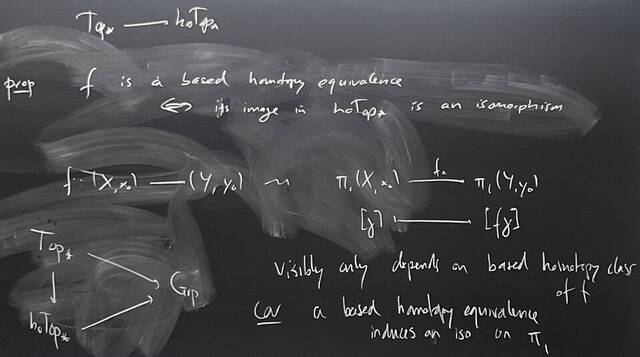 Top* —— hoTop*
prop f is a based homotopy equivalence
⟺ its image in hoTop* is an isomorphism
f: (X, x₀) —— (Y, y₀) ~ π₁(X, x₀) —f*→ π₁(Y, y₀)
[γ] ⟼ [fγ]
Top*
Grp
hoTop*
visibly only depends on based homotopy class
of f
Cor a based homotopy equivalence
induces an iso on π₁